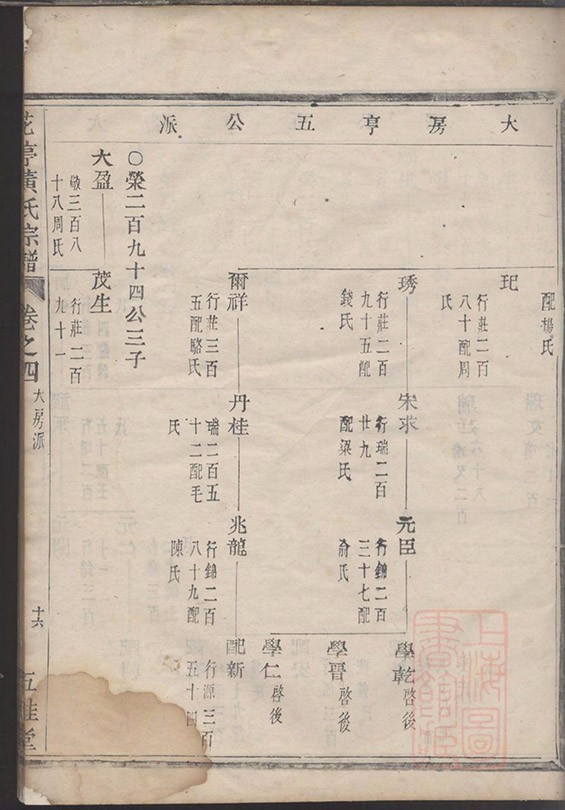 大房亨五公派
配楊氏
玘
行莊二百
八十配周
氏
琇
行莊二百
九十五配
錢氏
宋求
行瑞二百
廿九
配梁氏
元臣
行錦二百
三十七配
俞氏
學乾
啓後
學晋
啓後
學仁
啓後
爾祥
行莊三百
五配駱氏
丹桂
瑞二百五
十二配毛
氏
兆龍
行錦二百
八十九配
陳氏
配新
行源三百
五十四
○榮二百九十四公三子
大盈
敬三百八
十八周氏
茂生
行莊二百
九十一
花亭黃氏宗譜
卷之四
大房派
十六
五桂堂
上海圖書館藏